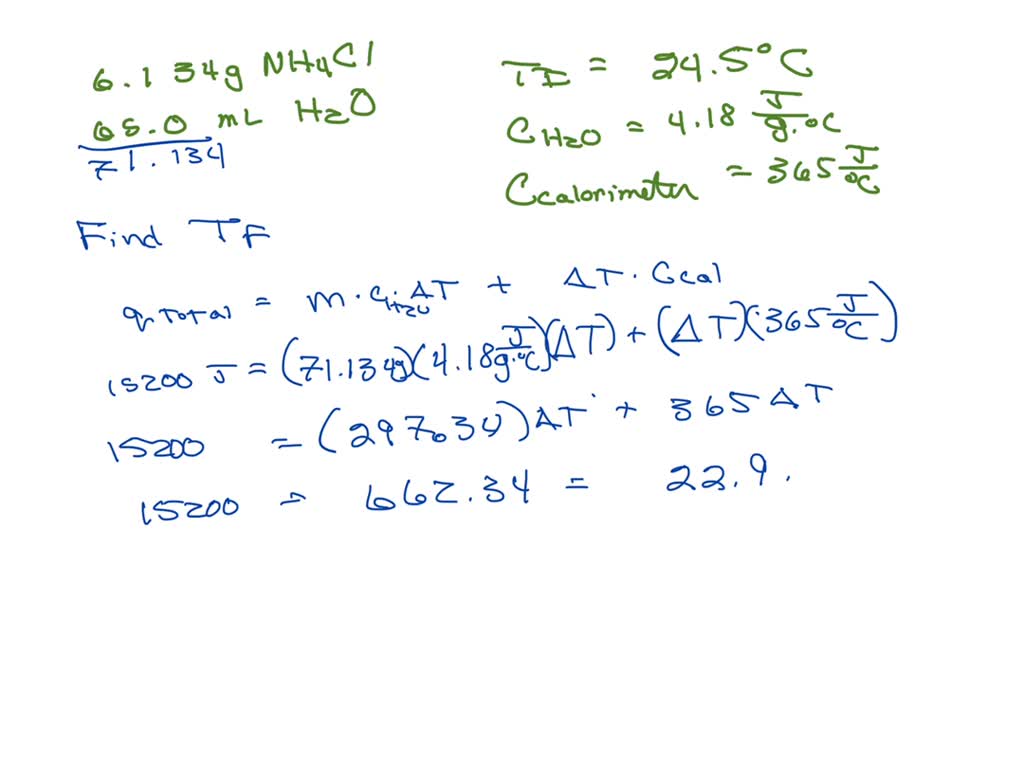 6.134g NH4Cl
65.0 mL H2O
71.134
TI = 24.5°C
CH2O = 4.18 J/g.°C
Ccalorimeter = 365 J/°C
Find TF
qTotal = m·CH2O·ΔT + ΔT·Ccal
15200 J = (71.134g)(4.18 J/g.°C)(ΔT) + (ΔT)(365 J/°C)
15200 = (297.34)ΔT + 365ΔT
15200 = 662.34 = 22.9.